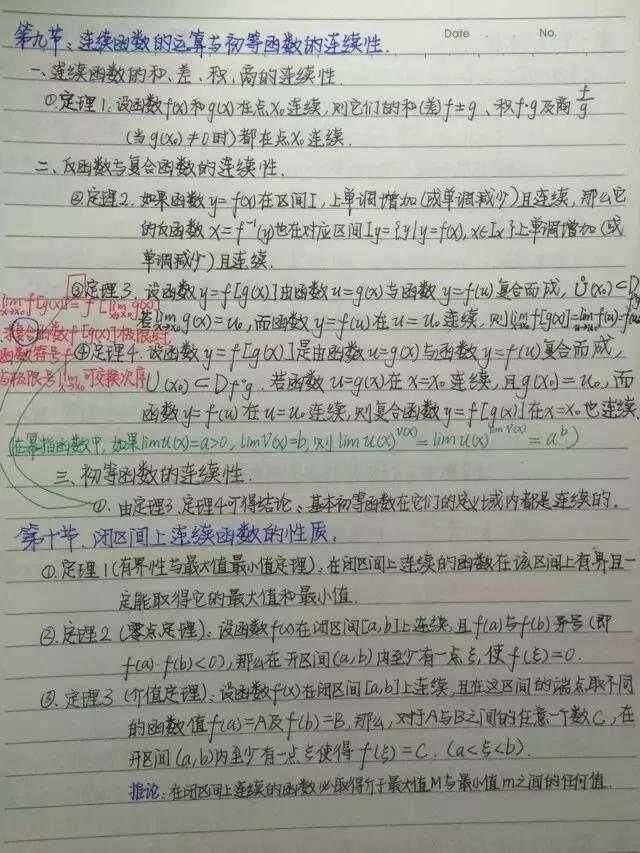 Date . No.
第九节:连续函数的运算与初等函数的连续性.
一、连续函数的和、差、积、商的连续性.
①.定理1:设函数f(x)和g(x)在点x₀连续,则它们的和(差)f±g、积f·g及商f/g
(当g(x₀)≠0时)都在点x₀连续.
二、反函数与复合函数的连续性.
②定理2.如果函数y=f(x)在区间Iₓ上单调增加(或单调减少)且连续,那么它
的反函数x=f⁻¹(y)也在对应区间Iy={y|y=f(x),x∈Iₓ}上单调增加(或
单调减少)且连续.
③定理3.设函数y=f[g(x)]由函数u=g(x)与函数y=f(u)复合而成,Ů(x₀)⊂D
若lim x→x₀ g(x)=u₀,而函数y=f(u)在u=u₀连续,则lim x→x₀ f[g(x)]=lim u→u₀ f(u)=f(u₀)
lim x→x₀ f[g(x)]=f[lim x→x₀ g(x)]
求复合函数f[g(x)]极限时,
函数符号f
与极限号lim x→x₀可交换次序
④定理4.设函数y=f[g(x)]是由函数u=g(x)与函数y=f(u)复合而成,
U(x₀)⊂Df∘g.若函数u=g(x)在x=x₀连续,且g(x₀)=u₀,而
函数y=f(u)在u=u₀连续,则复合函数y=f[g(x)]在x=x₀也连续.
(在幂指函数中,如果lim u(x)=a>0,lim v(x)=b,则lim u(x)^v(x)=lim u(x)^lim v(x)=a^b)
三、初等函数的连续性.
①.由定理3、定理4可得结论:基本初等函数在它们的定义域内都是连续的.
第十节.闭区间上连续函数的性质.
①.定理1(有界性与最大值最小值定理):在闭区间上连续的函数在该区间上有界且一
定能取得它的最大值和最小值.
②.定理2(零点定理):设函数f(x)在闭区间[a,b]上连续,且f(a)与f(b)异号(即
f(a)·f(b)<0),那么在开区间(a,b)内至少有一点ξ,使f(ξ)=0.
③.定理3(介值定理):设函数f(x)在闭区间[a,b]上连续,且在这区间的端点取不同
的函数值f(a)=A及f(b)=B,那么,对于A与B之间的任意一个数C,在
开区间(a,b)内至少有一点ξ使得f(ξ)=C.(a<ξ<b).
推论:在闭区间上连续的函数必取得介于最大值M与最小值m之间的任何值.